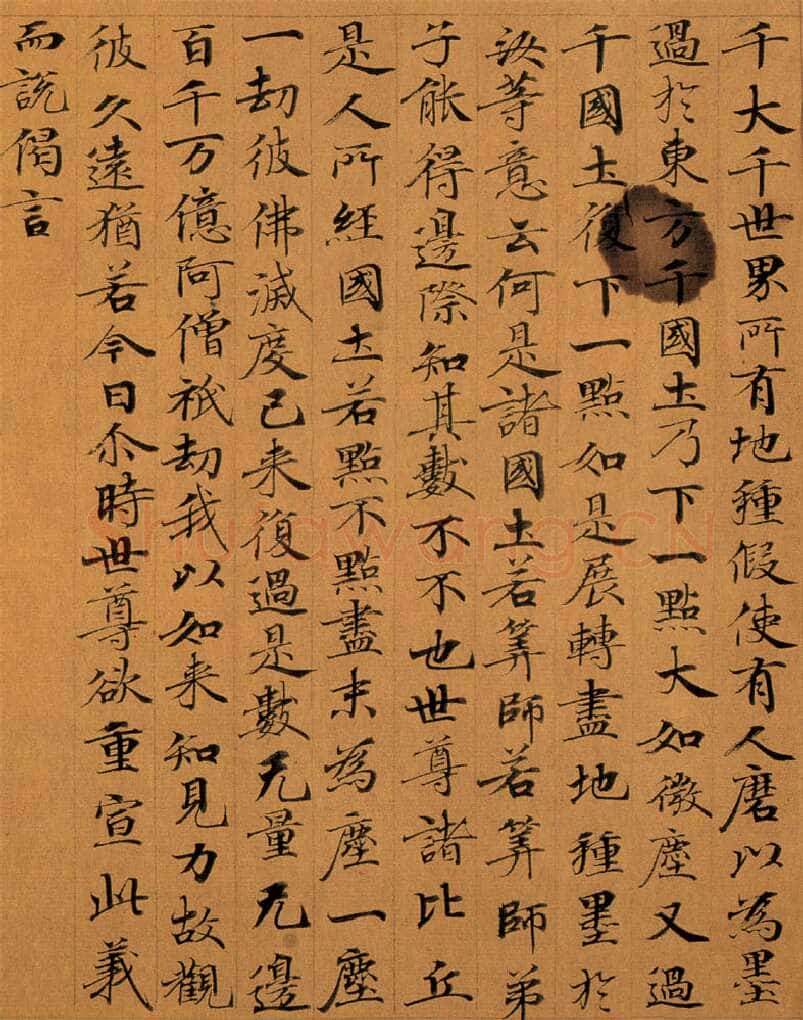 千大千世界所有地種假使有人磨以為墨
過於東方千國土乃下一點大如微塵又過
千國土復下一點如是展轉盡地種墨於
汝等意云何是諸國土若筭師若筭師弟
子能得邊際知其數不不也世尊諸比丘
是人所經國土若點不點盡末為塵一塵
一劫彼佛滅度已来復過是數无量无邊
百千万億阿僧祇劫我以如来知見力故觀
彼久遠猶若今日尒時世尊欲重宣此義
而說偈言
Shufawang.CN